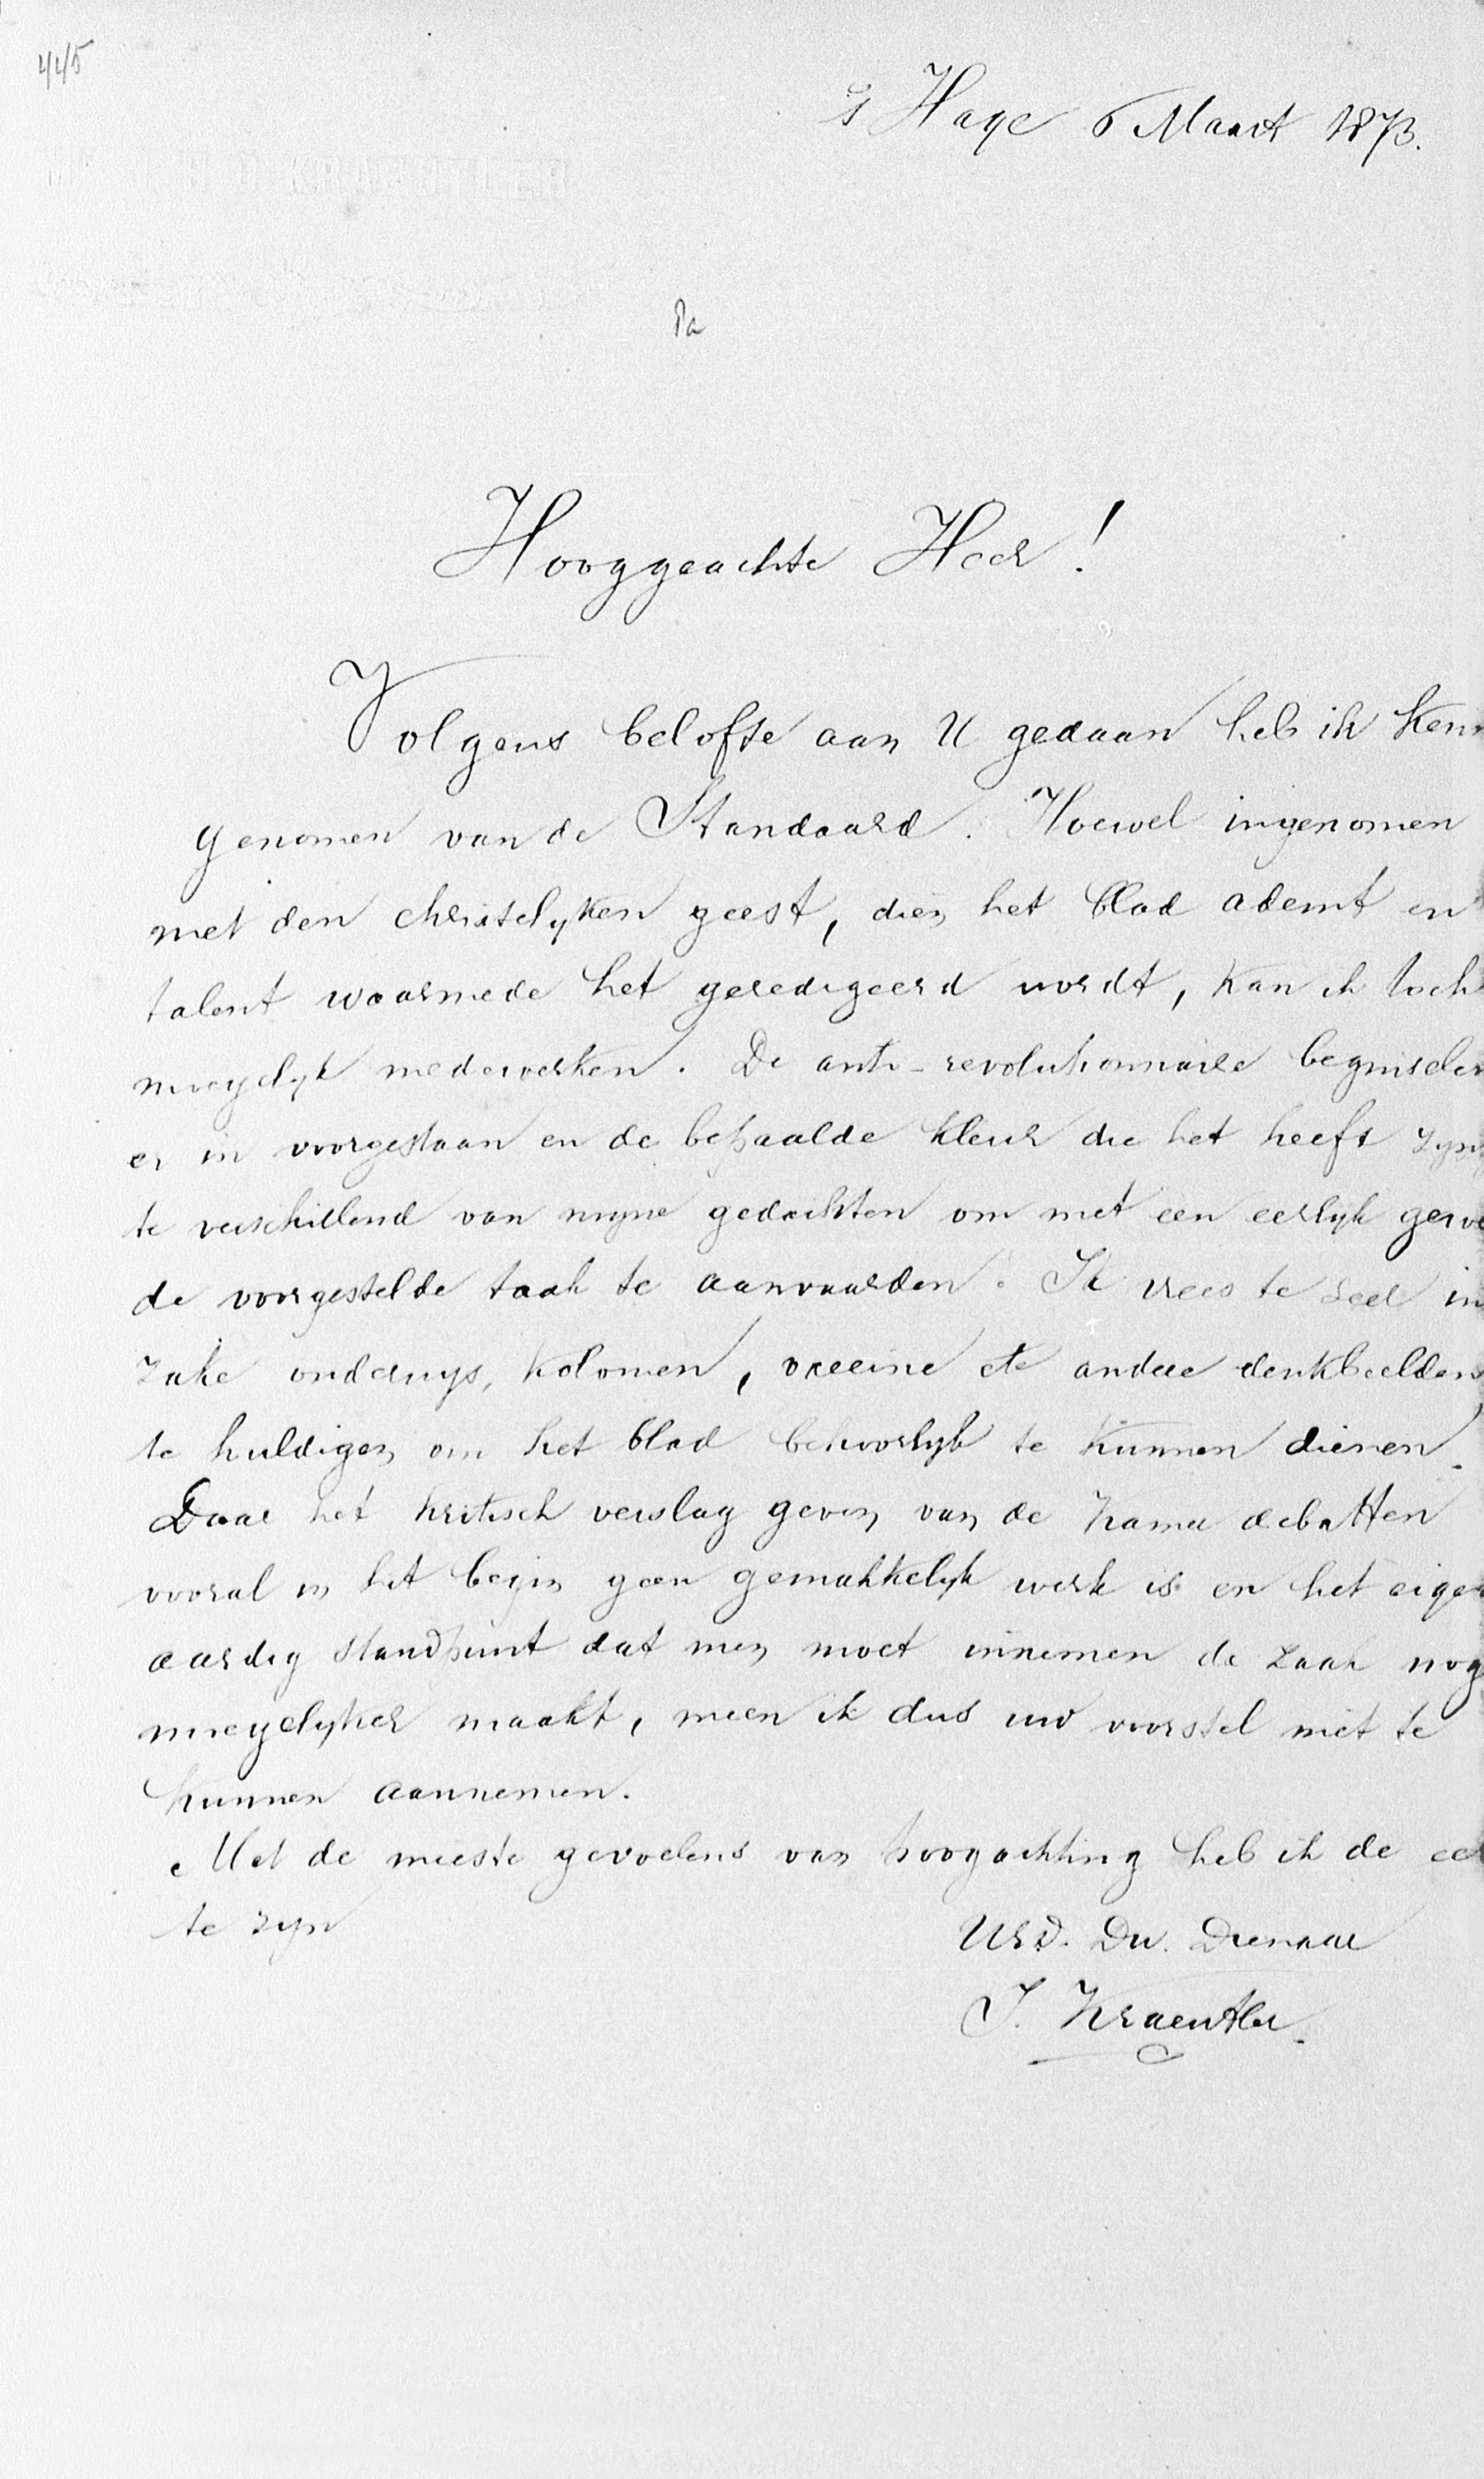 445
's Hage 6 Maart 1873.
Pa
Hooggeachte Heer!
Volgens belofte aan U gedaan heb ik Ken
genomen van de Standaard. Hoewel ingenomen
met den christelyken geest, dien het blad ademt en
talent waarmede het geredigeerd wordt, kan ik toch
moeyelyk medewerken. De anti-revolutionnaire beginselen
er in voorgestaan en de bepaalde kleur die het heeft zyn
te verschillend van myne gedachten om met een eerlyk gewe
de voorgestelde taak te aanvaarden. Ik vrees te zeer in
zake onderwys, Kolonien, etc andere denkbeelden
te huldigen om het blad behoorlyk te kunnen dienen.
Daar het kritisch verslag geven van de Kamer debatten
vooral in het begin geen gemakkelyk werk is en het eigen
aardig standpunt dat men moet innemen de zaak nog
moeyelyker maakt, meen ik dus uw voorstel niet te
kunnen aannemen.
Met de meeste gevoelens van hoogachting heb ik de eer
te zyn
UEd. Dw. Dienaar
J. Kraeutler.